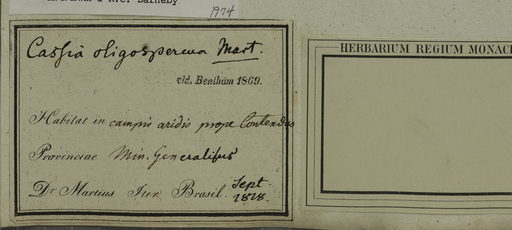 & R.C. Barneby
1974
Cassia oligosperma Mart.
vid. Bentham 1869.
Habitat in campis aridis prope Contendas
Provinciae Min. Generalibus
Dr Martius Iter Brasil. Sept.
1828.
HERBARIUM REGIUM MONAC